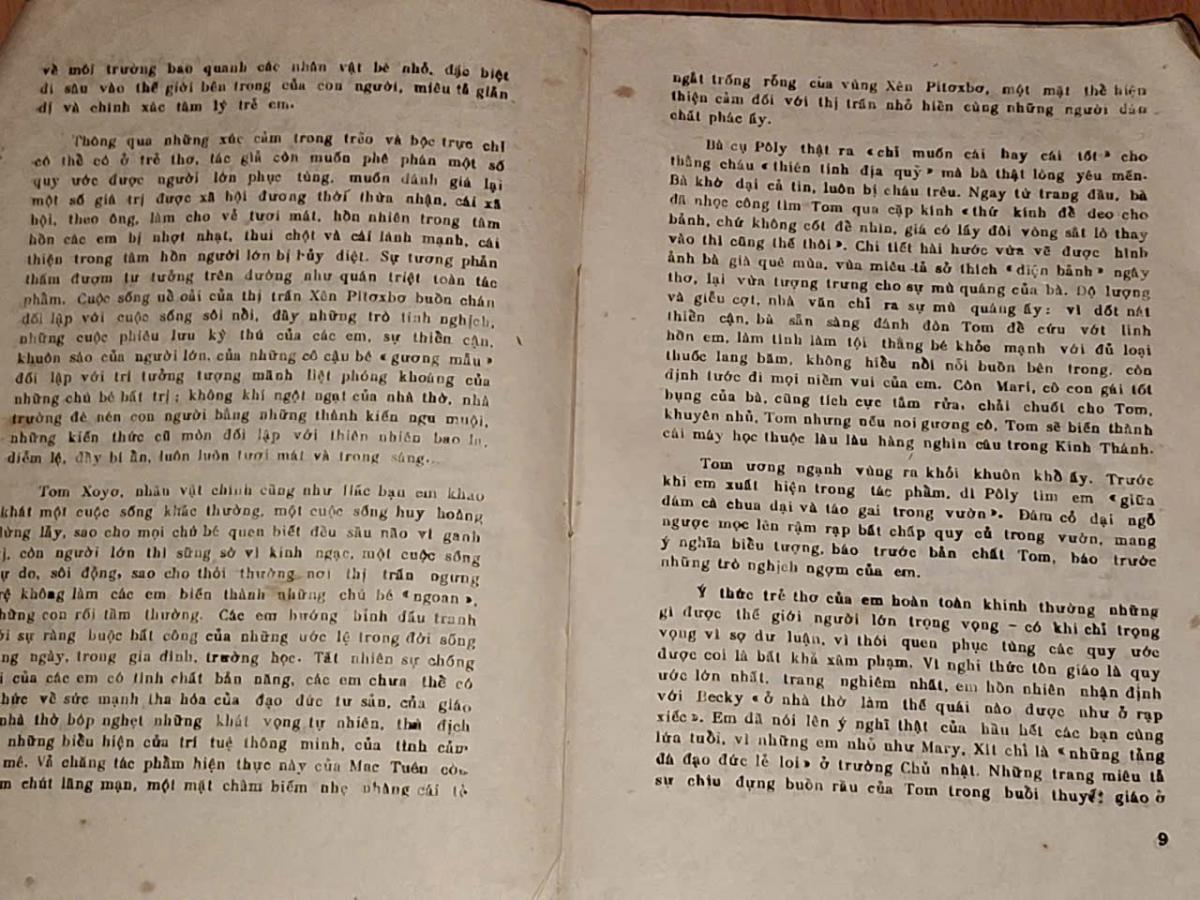 về môi trường bao quanh các nhân vật bé nhỏ, đặc biệt
đi sâu vào thế giới bên trong của con người, miêu tả giản
dị và chính xác tâm lý trẻ em.
Thông qua những xúc cảm trong trẻo và bộc trực chỉ
có thể có ở trẻ thơ, tác giả còn muốn phê phán một số
quy ước được người lớn phục tùng, muốn đánh giá lại
một số giá trị được xã hội đương thời thừa nhận, cái xã
hội, theo ông, làm cho vẻ tươi mát, hồn nhiên trong tâm
hồn các em bị nhợt nhạt, thui chột và cái lành mạnh, cái
thiện trong tâm hồn người lớn bị hủy diệt. Sự tương phản
thấm đượm tư tưởng trên dường như quán triệt toàn tác
phẩm. Cuộc sống uể oải của thị trấn Xên Pitoxbơ buồn chán
đối lập với cuộc sống sôi nổi, đầy những trò tinh nghịch,
những cuộc phiêu lưu kỳ thú của các em, sự thiển cận,
khuôn sáo của người lớn, của những cô cậu bé «gương mẫu»
đối lập với trí tưởng tượng mãnh liệt phóng khoáng của
những chú bé bất trị; không khí ngột ngạt của nhà thờ, nhà
trường đè nén con người bằng những thành kiến ngu muội,
những kiến thức cũ mòn đối lập với thiên nhiên bao la,
diễm lệ, đầy bí ẩn, luôn luôn tươi mát và trong sáng...
Tom Xoyơ, nhân vật chính cũng như Hắc bạn em khao
khát một cuộc sống khác thường, một cuộc sống huy hoàng
lừng lẫy, sao cho mọi chú bé quen biết đều sầu não vì ganh
ị, còn người lớn thì sững sờ vì kinh ngạc, một cuộc sống
ự do, sôi động, sao cho thói thường nơi thị trấn ngưng
rệ không làm các em biến thành những chú bé «ngoan»,
hững con rối tầm thường. Các em bướng bỉnh đấu tranh
ới sự ràng buộc bất công của những ước lệ trong đời sống
ng ngày, trong gia đình, trường học. Tất nhiên sự chống
i của các em có tính chất bản năng, các em chưa thể có
hức về sức mạnh tha hóa của đạo đức tư sản, của giáo
nhà thờ bóp nghẹt những khát vọng tự nhiên, thù địch
những biểu hiện của trí tuệ thông minh, của tình cảm
mê. Vả chăng tác phẩm hiện thực này của Mac Tuên còn
m chút lãng mạn, một mặt châm biếm nhẹ nhàng cái tẻ
ngắt trống rỗng của vùng Xên Pitoxbơ, một mặt thể hiện
thiện cảm đối với thị trấn nhỏ hiền cùng những người dân
chất phác ấy.
Bà cụ Pôly thật ra «chỉ muốn cái hay cái tốt» cho
thằng cháu «thiên tinh địa quỷ» mà bà thật lòng yêu mến.
Bà khờ dại cả tin, luôn bị cháu trêu. Ngay từ trang đầu, bà
đã nhọc công tìm Tom qua cặp kính «thứ kính để đeo cho
bảnh, chứ không cốt để nhìn, giá có lấy đôi vòng sắt lò thay
vào thì cũng thế thôi». Chi tiết hài hước vừa vẽ được hình
ảnh bà già quê mùa, vừa miêu tả sở thích «diện bảnh» ngây
thơ, lại vừa tượng trưng cho sự mù quáng của bà. Độ lượng
và giễu cợt, nhà văn chỉ ra sự mù quáng ấy: vì dốt nát
thiển cận, bà sẵn sàng đánh đòn Tom để cứu vớt linh
hồn em, làm tình làm tội thằng bé khỏe mạnh với đủ loại
thuốc lang băm, không hiểu nổi nỗi buồn bên trong, còn
định tước đi mọi niềm vui của em. Còn Mari, cô con gái tốt
bụng của bà, cũng tích cực tắm rửa, chải chuốt cho Tom,
khuyên nhủ, Tom nhưng nếu noi gương cô, Tom sẽ biến thành
cái máy học thuộc làu làu hàng nghìn câu trong Kinh Thánh.
Tom ương ngạnh vùng ra khỏi khuôn khổ ấy. Trước
khi em xuất hiện trong tác phẩm, dì Pôly tìm em «giữa
đám cà chua dại và táo gai trong vườn». Đám cỏ dại ngỗ
ngược mọc lên rậm rạp bất chấp quy củ trong vườn, mang
ý nghĩa biểu tượng, báo trước bản chất Tom, báo trước
những trò nghịch ngợm của em.
Ý thức trẻ thơ của em hoàn toàn khinh thường những
gì được thế giới người lớn trọng vọng — có khi chỉ trọng
vọng vì sợ dư luận, vì thói quen phục tùng các quy ước
được coi là bất khả xâm phạm. Vì nghi thức tôn giáo là quy
ước lớn nhất, trang nghiêm nhất, em hồn nhiên nhận định
với Becky «ở nhà thờ làm thế quái nào được như ở rạp
xiếc». Em đã nói lên ý nghĩ thật của hầu hết các bạn cùng
lứa tuổi, vì những em nhỏ như Mary, Xit chỉ là «những tảng
đá đạo đức lẻ loi» ở trường Chủ nhật. Những trang miêu tả
sự chịu đựng buồn rầu của Tom trong buổi thuyết giáo ở
9